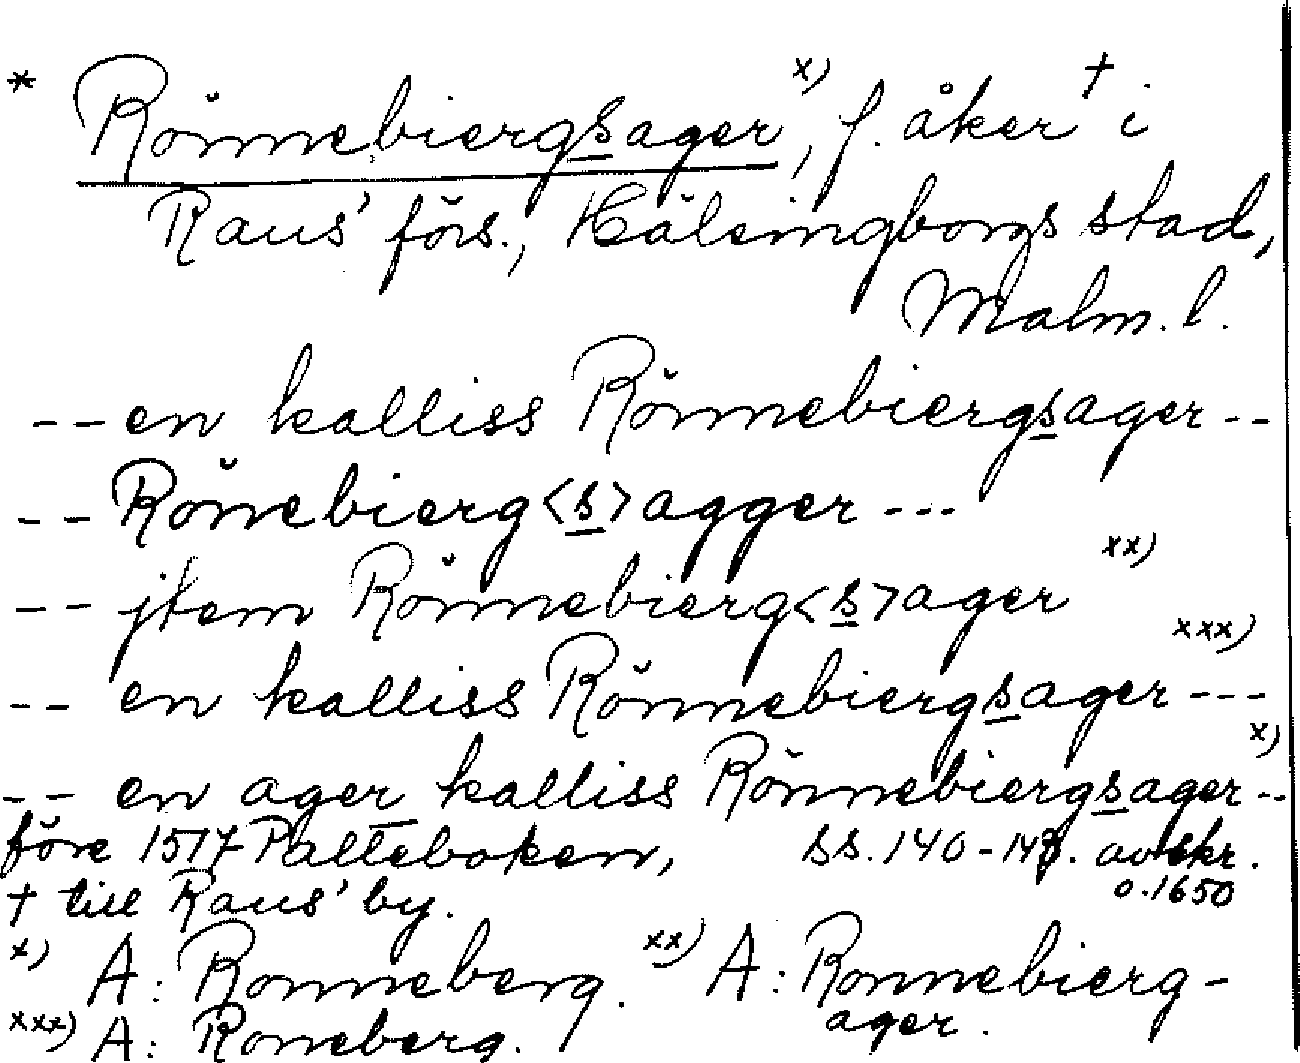 * Rönnebiergsager x), f. åker † i
Raus' förs., Hälsingborgs stad,
Malm. l.
-- en kalliss Rönnebiergsager --
-- Rönebierg<s>agger ---
-- jtem Rönnebierg<s>ager xx)
-- en kalliss Rönnebiergsager --- xxx)
-- en ager kalliss Rönnebiergsager -- x)
före 1517 Palteboken, ss. 140-143. avskr.
o. 1650
† till Raus' by.
x) A: Ronneberg. xx) A: Ronnebierg-
ager.
xxx) A: Roneberg.